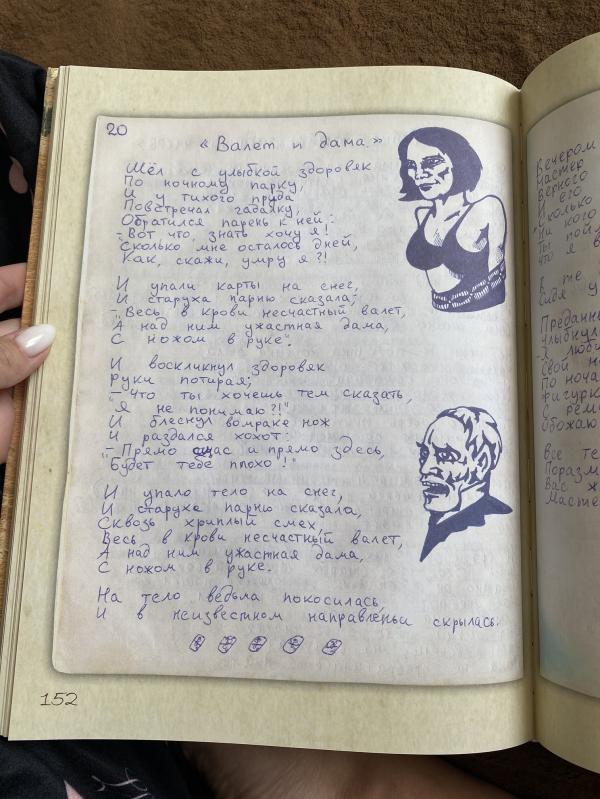 20
«Валет и дама.»
Шёл с улыбкой здоровяк
По ночному парку,
И у тихого пруда
Повстречал гадалку,
Обратился парень к ней:
- Вот что, знать хочу я!
Сколько мне осталось дней,
Как, скажи, умру я?!
И упали карты на снег,
И старуха парню сказала;
-"Весь в крови несчастный валет,
А над ним ужастная дама,
С ножом в руке".
И воскликнул здоровяк
руки потирая;
- "Что ты хочешь тем сказать,
"Я не понимаю?!"
И блеснул вомраке нож
И раздался хохот:
"-Прямо щас и прямо здесь,
Будет тебе плохо"!"
И упало тело на снег,
И старуха парню сказала,
Сквозь хриплый смех,
Весь в крови несчастный валет,
А над ним ужастная дама,
С ножом в руке.
На тело ведьма покосилась
И в неизвестном направленьи скрылась.
152
Вечером
Мастер
Верного
И его
Сколько
На кого
Ты пой
что я
В те
Сидя
Преданн
улыбнул
Я люби
Свой
По ноча
Фигурк
С рем
Обожаю
Все те
Поразм
Вас ж
Масте